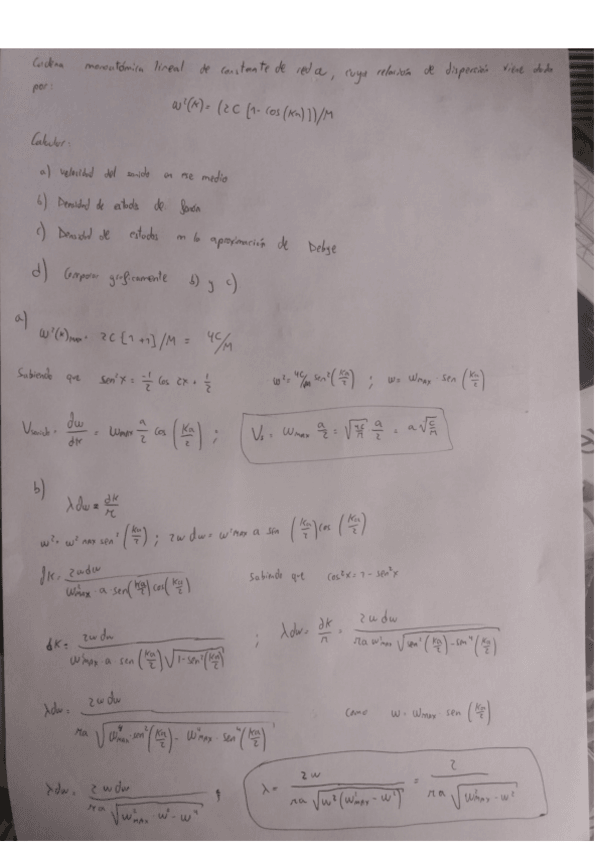 Cadena monoatómica lineal de constante de red a, cuya relación de dispersión viene dada
por:
ω²(k) = (2C [1 - cos(ka)])/M
Calcular:
a) velocidad del sonido en ese medio
b) Densidad de estados de
c) Densidad de estados en la aproximación de Debye
d) Comparar gráficamente b) y c)
a)
ω²(k)max = 2C[1+1]/M = 4C/M
Sabiendo que sen²x = -1/2 cos 2x + 1/2    ω² = 4C/M sen²(ka/2) ; ω = ωmax · sen(ka/2)
Vsonido = dω/dk = ωmax a/2 cos(ka/2) ; Vs = ωmax a/2 = √(4C/M) a/2 = a√(C/M)
b)
λdω = dk/π
ω² = ω²max sen²(ka/2) ; 2ωdω = ω²max a sin(ka/2) cos(ka/2)
dk = 2ωdω / ω²max · a · sen(ka/2) cos(ka/2)    Sabiendo que cos²x = 1 - sen²x
dk = 2ωdω / ω²max · a sen(ka/2) √(1-sen²(ka/2)) ; λdω = dk/π = 2ωdω / πa ω²max √(sen²(ka/2) - sen⁴(ka/2))
λdω = 2ωdω / πa √(ω⁴max sen²(ka/2) - ω⁴max · sen⁴(ka/2))    como ω = ωmax · sen(ka/2)
λdω = 2ωdω / πa √(ω²max · ω² - ω⁴) ; λ = 2ω / πa √(ω²(ω²max - ω²)) = 2 / πa √(ω²max - ω²)